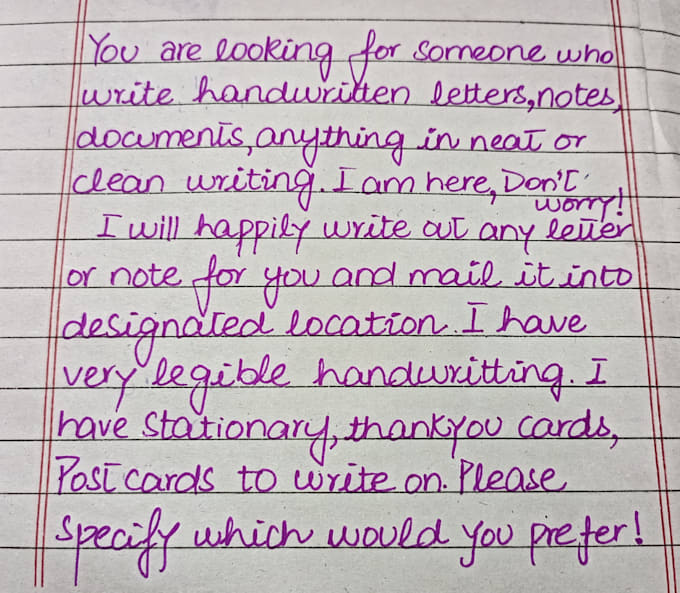 You are looking for someone who
write handwritten letters, notes,
documents, anything in neat or
clean writing. I am here, Don't
worry!
I will happily write out any letter
or note for you and mail it into
designated location. I have
very legible handwritting. I
have stationary, thankyou cards,
Post cards to write on. Please
specify which would you prefer!